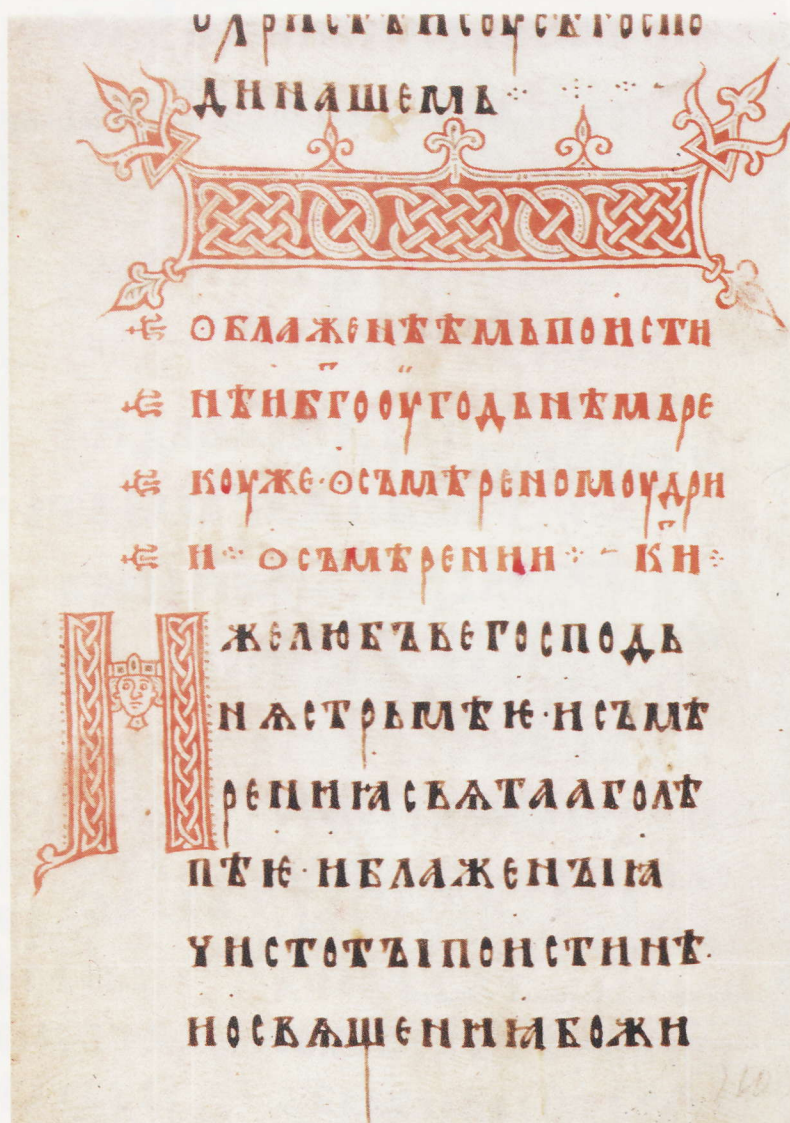 о христѣ исоусѣ госпо
ди нашемь
о блаженѣѣмь по исти
нѣ и б҃гооугодьнѣмь ре
коу же · о съмѣреномоудри
и · о съмѣрении · к҃и
иже любъве господь
нѧ стрьмѣѥ · и съмѣ
рениꙗ свѧтааго лѣ
пѣѥ · и блаженъıꙗ
чистотъı по истинѣ ·
и освѧщениꙗ божи